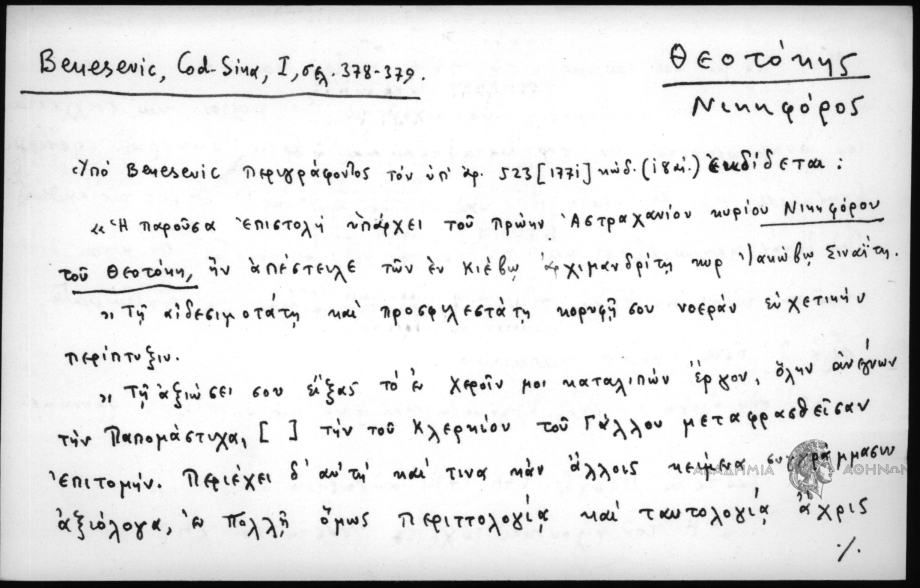 Benesevic, Cod. Sina, I, σελ. 378-379.
Θεοτόκης
Νικηφόρος
Ὑπό Benesevic περιγράφοντος τόν ὑπ' ἀρ. 523 [1771] κώδ. (ιθ' αἰ.) ἐκδίδεται:
«Ἡ παροῦσα ἐπιστολή ὑπάρχει τοῦ πρώην Ἀστραχανίου κυρίου Νικηφόρου
τοῦ Θεοτόκη, ἥν ἀπέστειλε τῶν ἐν Κιέβῳ ἀρχιμανδρίτῃ κυρ Ἰακώβῳ Σιναΐτῃ.
»Τῇ αἰδεσιμοτάτῃ καί προσφιλεστάτῃ κορυφῇ σου νοεράν εὐχετικήν
περίπτυξιν.
»Τῇ ἀξιώσει σου εἴξας τό ἐν χεροῖν μοι καταλιπών ἔργον, ὅλην ἀνέγνων
τήν Παπομάστιγα, [ ] τήν τοῦ Κλερκίου τοῦ Γάλλου μεταφρασθεῖσαν
ἐπιτομήν. Περιέχει δ' αὐτή καί τινα κἀν ἄλλοις κείμενα συγγράμμασιν
ἀξιόλογα, ἐν πολλῇ ὅμως περιττολογίᾳ καί ταυτολογίᾳ ἄχρις
./.
ΑΚΑΔΗΜΙΑ ΑΘΗΝΩΝ